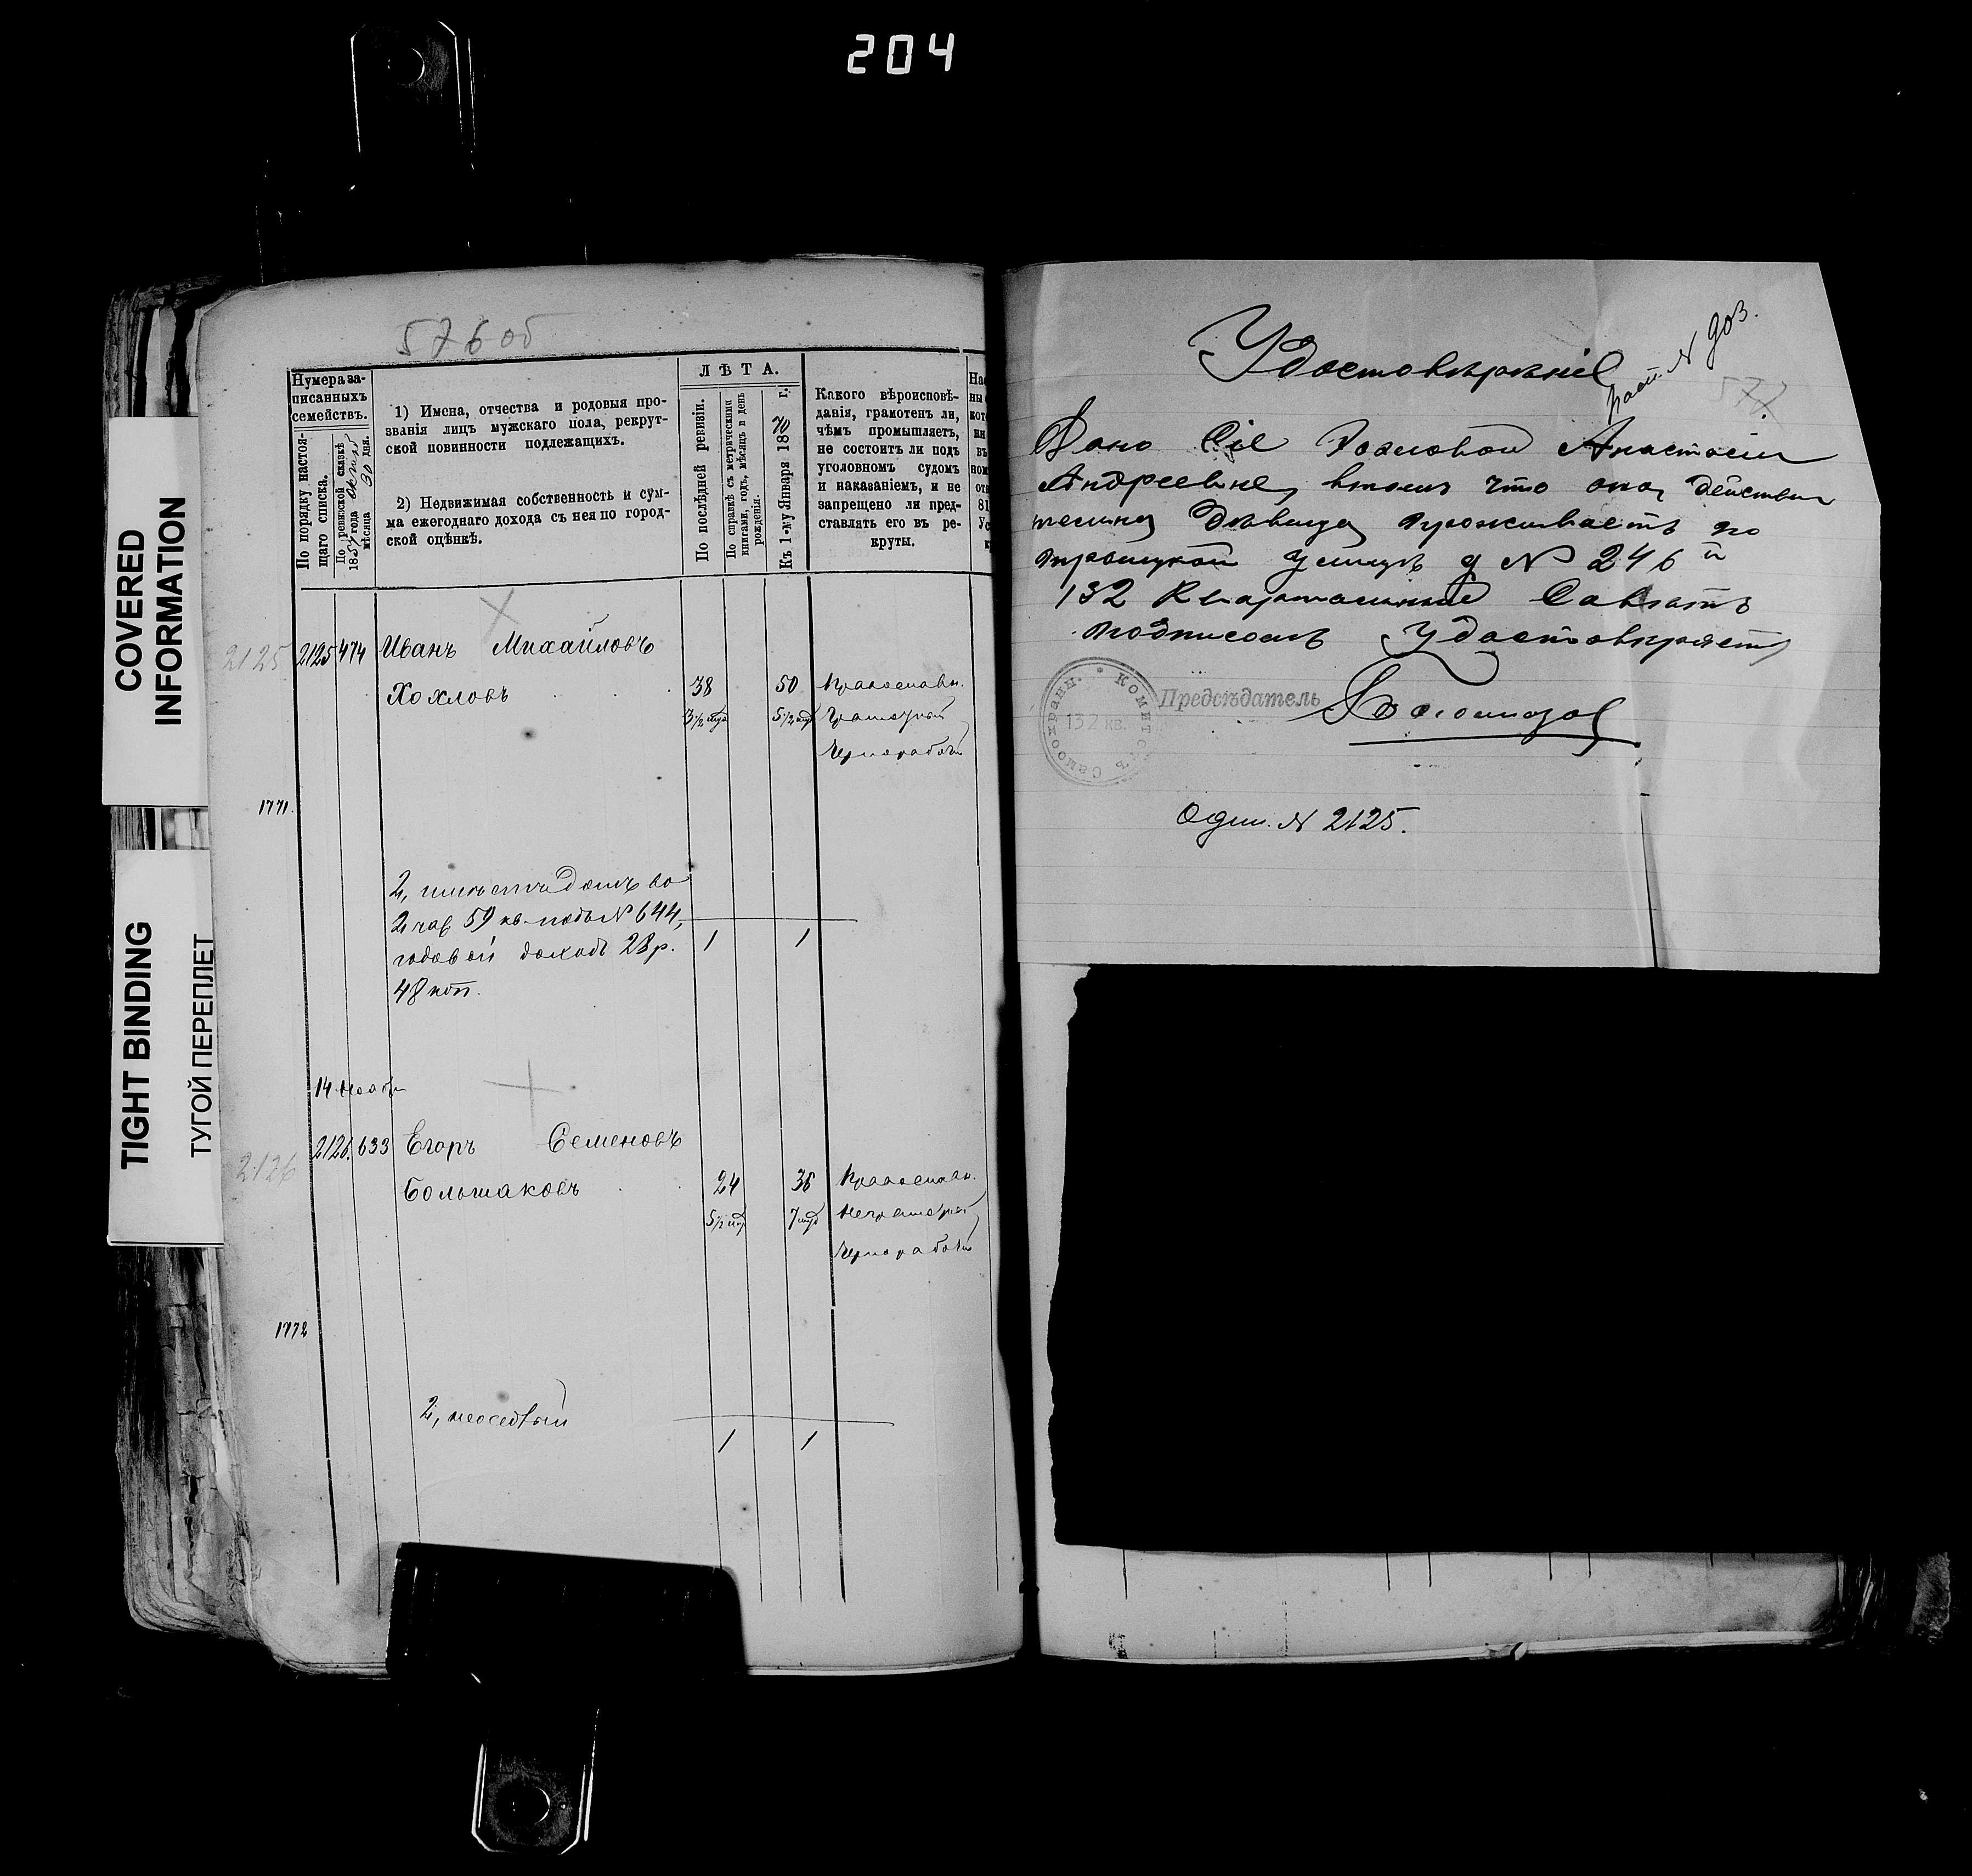 204
COVERED
INFORMATION
TIGHT BINDING
ТУГОЙ ПЕРЕПЛЕТ
576 об
Нумера за-
писанныхъ
семействъ.
По порядку настоя-
щаго списка.
По ревизской сказкѣ
18 года
мѣсяца 30 дня.
1) Имена, отчества и родовыя про-
званія лицъ мужскаго пола, рекрут-
ской повинности подлежащихъ.
2) Недвижимая собственность и сум-
ма ежегоднаго дохода съ нея по город-
ской оцѣнкѣ.
ЛѢТА.
По послѣдней ревизіи.
По справкѣ съ метрическими
книгами, годъ, мѣсяцъ и день
рожденія.
Къ 1-му Января 1870 г.
Какого вѣроисповѣ-
данія, грамотенъ ли,
чѣмъ промышляетъ,
не состоитъ ли подъ
уголовнымъ судомъ
и наказаніемъ, и не
запрещено ли пред-
ставлять его въ ре-
круты.
2125 2125 474 Иванъ Михайловъ
Хохловъ 38 50 Православн.
3½ 5½ Грамотный
Чернорабочій
1771.
2, имѣетъ домъ во
2 час 59 кв. подъ № 644,
годовой доходъ 28 р. 1 1
48 коп.
14 Ноябр
2126 2126. 633 Егоръ Семеновъ
Большаковъ 24 36 Православн.
5½ 7 Неграмотный
Чернорабочій
1772
2, неоседлый
1 1
Удостовѣреніе
№ 903.
577.
Дано Сіе Хохловой Анастасіи
Андреевне, втомъ что она действи
тельно Девица проживаетъ по
троицкой улицѣ д № 246 й
132 Квартальный Советъ
подписомъ Удостовѣряетъ
Предсѣдатель
Комитетъ Самоохраны. 132 кв.
Один. № 2125.